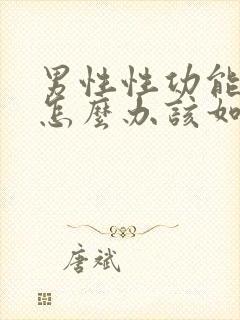 男性性功能
怎麼办該如
唐斌